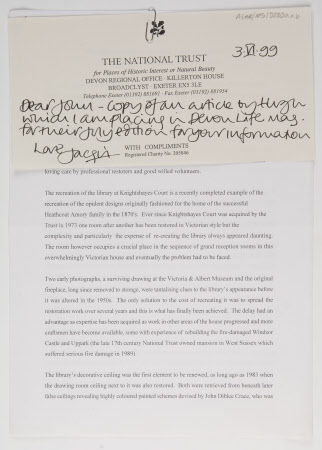 3.VI.99
THE NATIONAL TRUST
for Places of Historic Interest or Natural Beauty
DEVON REGIONAL OFFICE · KILLERTON HOUSE
BROADCLYST · EXETER EX5 3LE
Telephone Exeter (01392) 881691 · Fax Exeter (01392) 881954
Dear John - Copy of an article by Hugh
which I am placing in Devon Life mag.
for their July edition for your information
Love Jacqui
WITH COMPLIMENTS
Registered Charity No. 205846
loving care by professional restorers and good willed volunteers.
The recreation of the library at Knightshayes Court is a recently completed example of the
recreation of the opulent designs originally fashioned for the home of the successful
Heathcoat Amory family in the 1870's. Ever since Knightshayes Court was acquired by the
Trust in 1973 one room after another has been restored to Victorian style but the
complexity and particularly the expense of re-creating the library always appeared daunting.
The room however occupies a crucial place in the sequence of grand reception rooms in this
overwhelmingly Victorian house and eventually the problem had to be faced.
Two early photographs, a surviving drawing at the Victoria & Albert Museum and the original
fireplace, long since removed to storage, were tantalising clues to the library's appearance before
it was altered in the 1950s. The only solution to the cost of recreating it was to spread the
restoration work over several years and this is what has finally been achieved. The delay had an
advantage as expertise has been acquired as work in other areas of the house progressed and more
craftsmen have become available, some with experience of rebuilding the fire-damaged Windsor
Castle and Uppark (the late 17th century National Trust owned mansion in West Sussex which
suffered serious fire damage in 1989).
The library's decorative ceiling was the first element to be renewed, as long ago as 1983 when
the drawing room ceiling next to it was also restored. Both were retrieved from beneath later
false ceilings revealing highly coloured painted schemes devised by John Dibblee Crace, who was